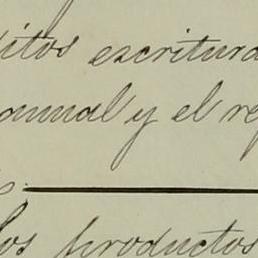 itos escritura
anual y el re
los productos